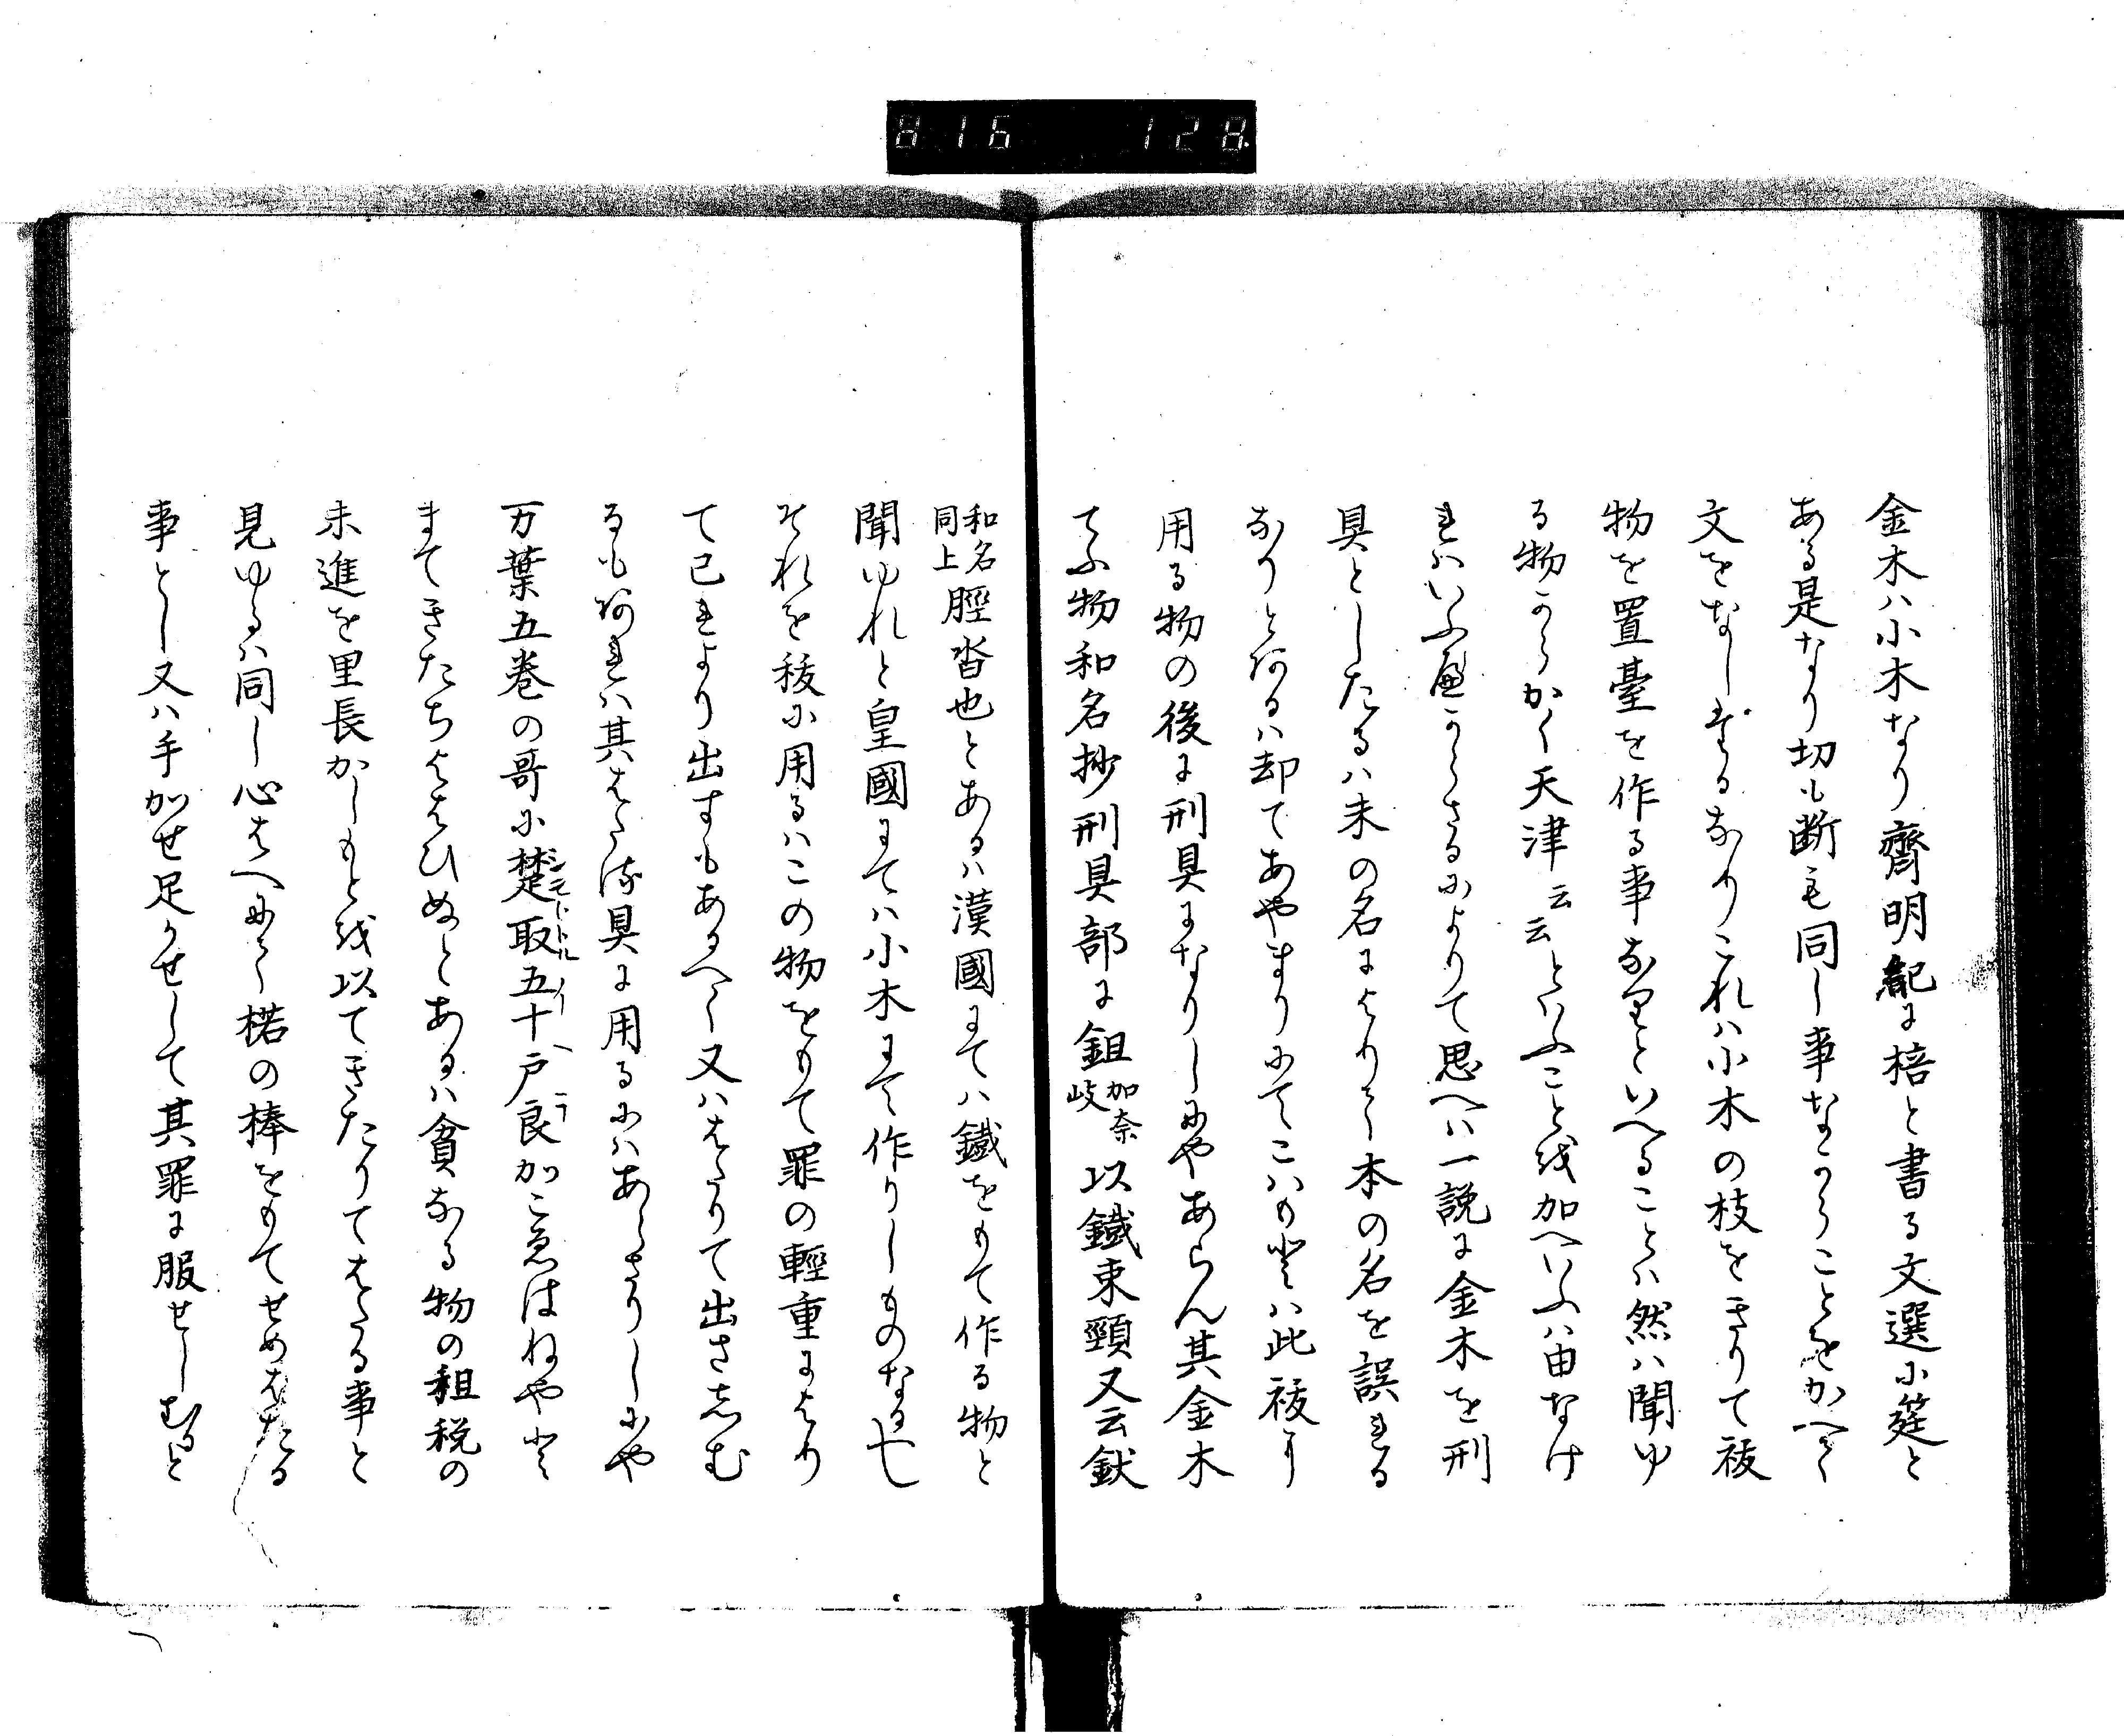 816 128
金木ハ小木なり齊明紀に棓と書る文選に筳と
ある是なり切も断も同し事なからことをかへて
文をなしたるなりこれハ小木の枝をきりて祓
物を置臺を作る事なりといへることハ然ハ聞ゆ
る物からかく天津云云といふこと越加へいふハ由なけ
れハいふへからさるによりて思へハ一説に金木を刑
具としたるハ末の名によりて本の名を誤れる
なりとあるハ却てあやまりにてこハもとハ此祓に
用る物の後に刑具になりしにやあらん其金木
てふ物和名抄刑具部に鉗加奈岐以鐵束頸又云釱
和名同上脛沓也とあるハ漢國にてハ鐵をもて作る物と
聞ゆれと皇國にてハ小木にて作りしものなる也
それを祓に用るハこの物をもて罪の輕重により
て己れより出すもあるへく又ハはたりて出さしむ
るもあれハ其はたる具に用るにハあらさりしにや
万葉五巻の哥に楚取シモトトル五十戸良イヘラ加こゑはねやと
まてきたちよはひぬとあるハ貧なる物の租税の
未進を里長かしもと越以てきたりてはたる事と
見ゆるハ同し心はへにて楉の棒をもてせめはたる
事とし又ハ手かせ足かせして其罪に服せしむると